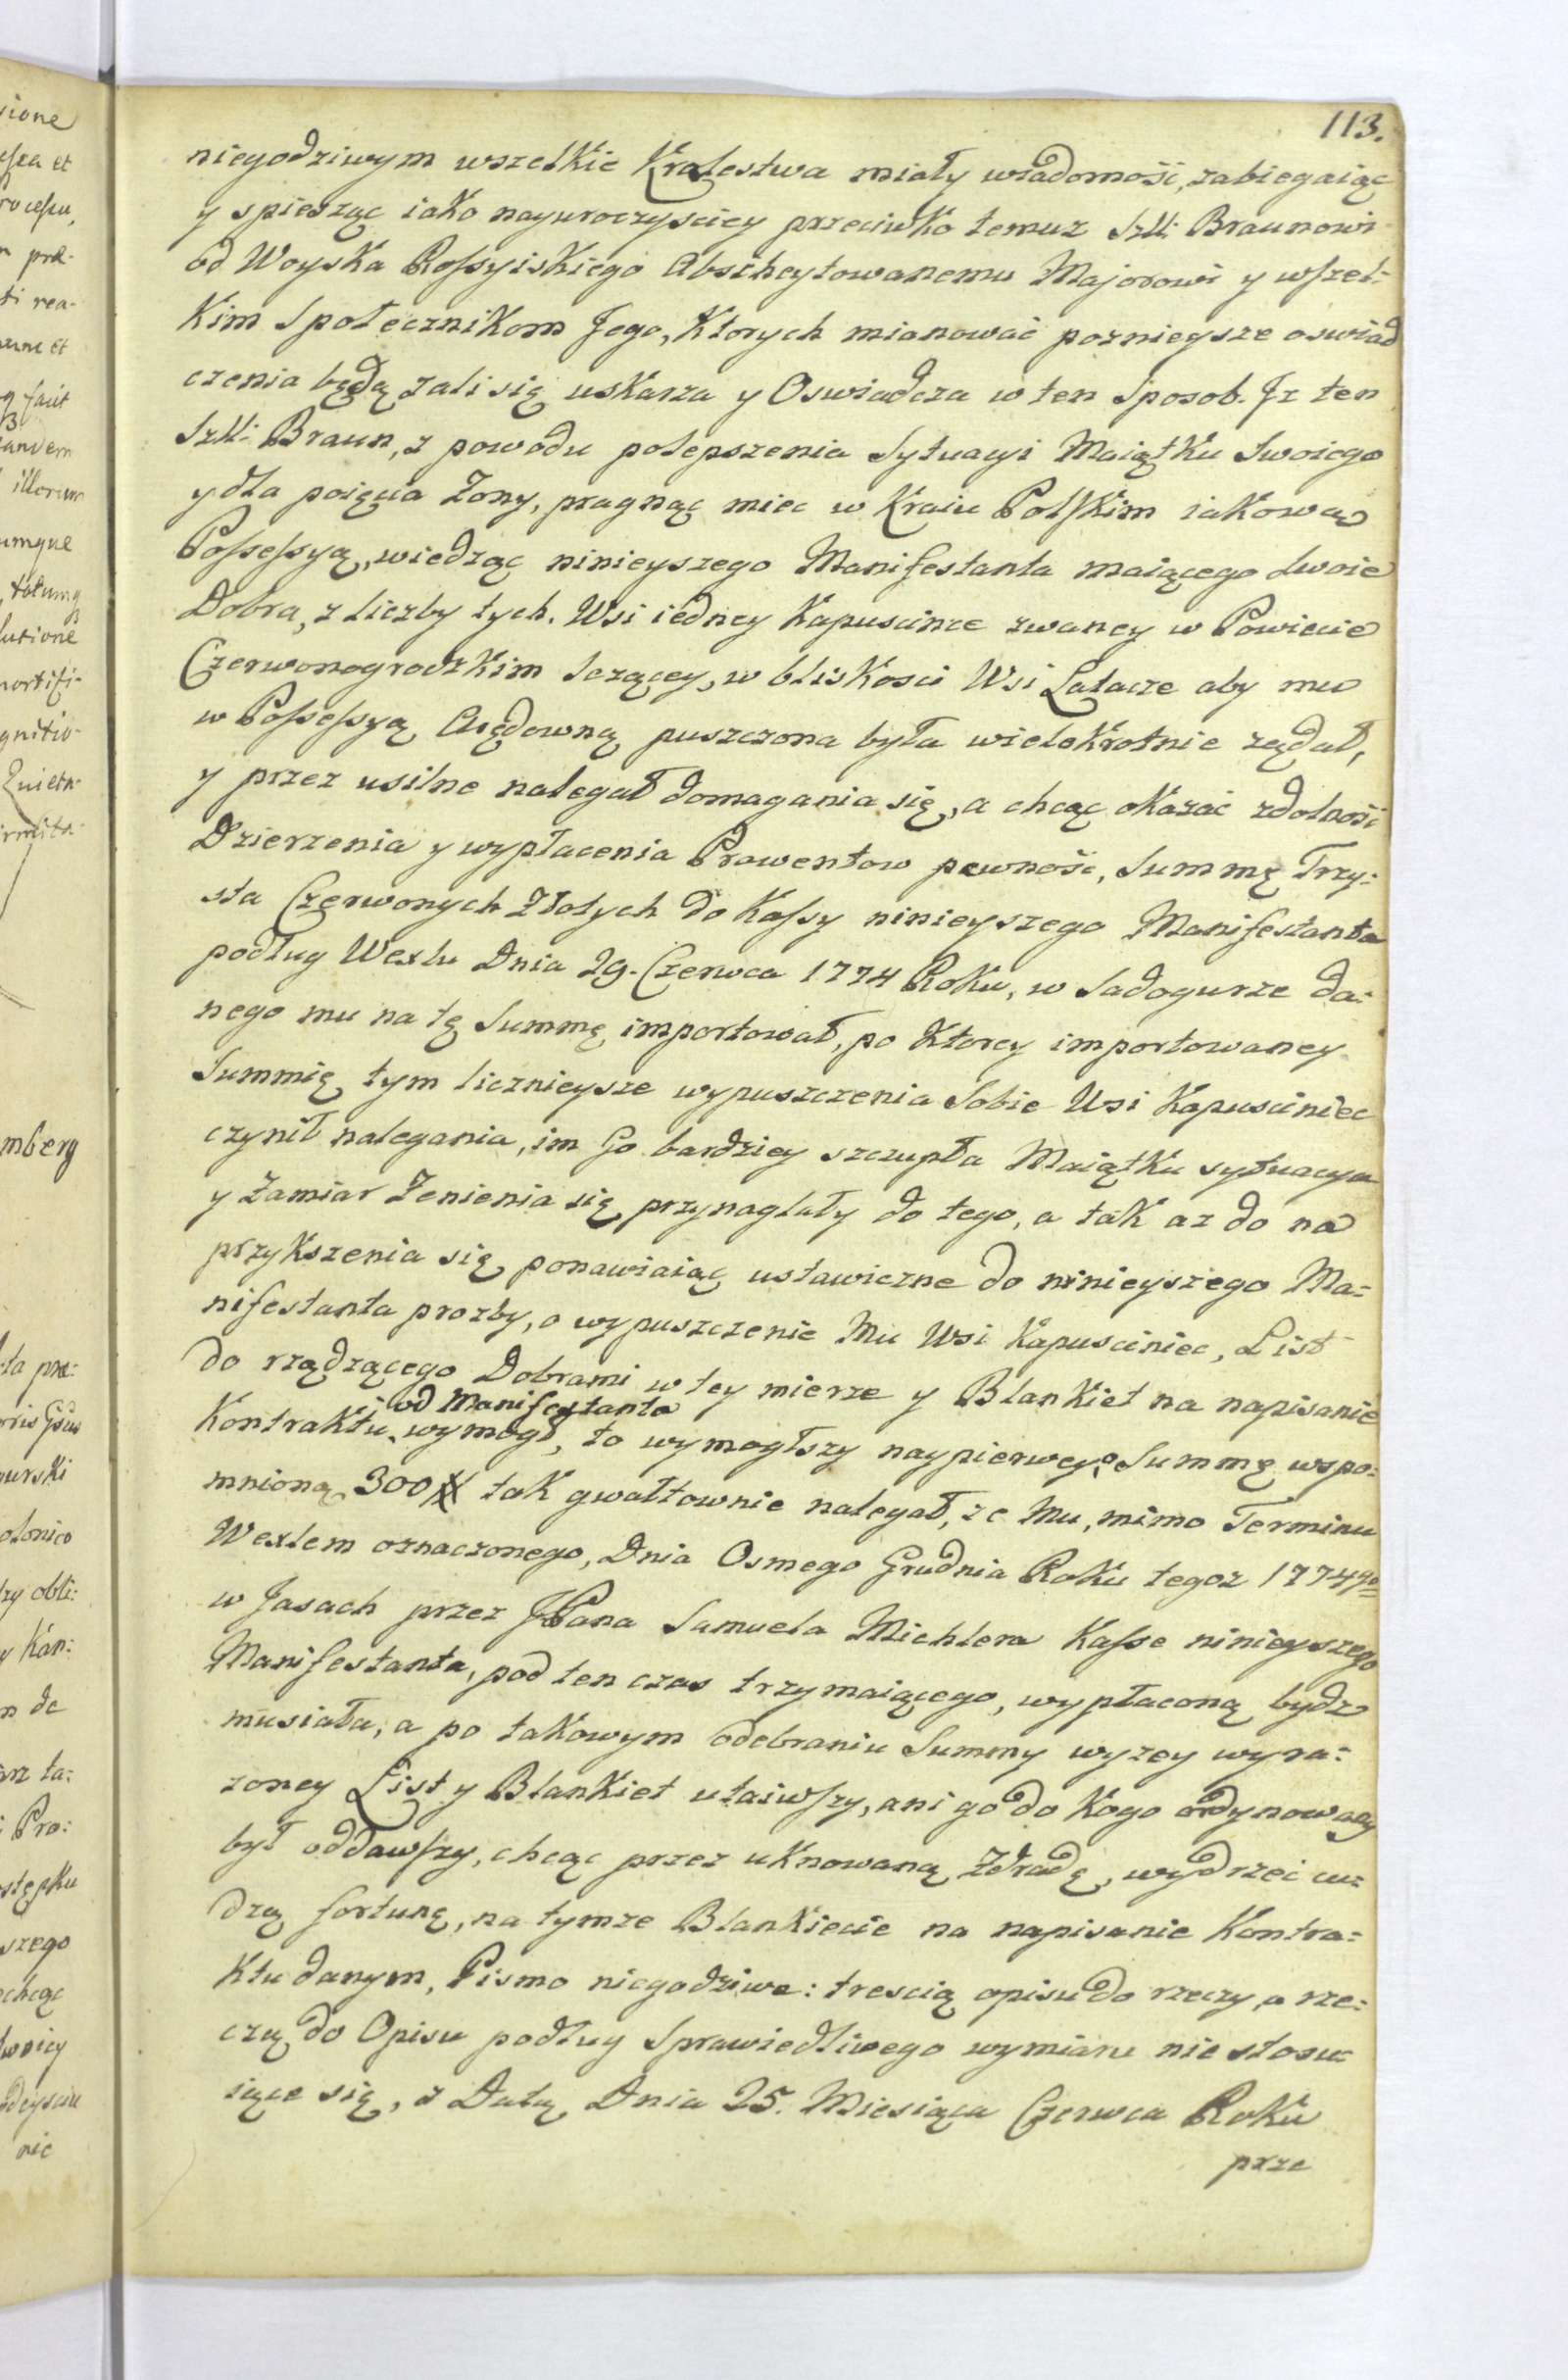 113.
niegodziwym wszelkie Krolestwa miały wiadomość, zabiegaiąc
y spiesząc iako nayuroczysciey przeciwko temuz Szll: Braunowi
od Woyska Rossyiskiego Abscheytowanemu Majorowi y wszel-
kim Społecznikom Jego, Ktorych mianować poznieysze oswiad
czenia będą, zali się uskarza y Oswiadcza w ten Sposob. Jz ten
Szll: Braun, z powodu polepszenia Sytuacyi Maiątku Swoiego
y dla poięcia Zony, pragnąc miec w Kraiu Polskim iakową
Possessyą, wiedząc ninieyszego Manifestanta maiącego Swoie
Dobra, z liczby tych. Wsi iedney Kapuscince zwaney w Powiecie
Czerwonogrodzkim lezącey, w bliskosci Wsi Latacze aby mu
w Possessyą Arędowną puszczona była wielokrotnie ządał,
y przez usilne nalegał domagania się, a chcąc okazać zdolność
Dzierzenia y wypłacenia Prowentow pewność, Summę Trzy-
sta Czerwonych Złotych do Kassy ninieyszego Manifestanta
podług Wexlu Dnia 29. Czerwca 1774 Roku, w Sadogurze da-
nego mu na tę Summę importował, po Ktorey importowaney
Summię tym licznieysze wypuszczenia Sobie Wsi Kapusciniec
czynił nalegania, im Go bardziey szczupła Maiątku sytuacya
y Zamiar Zenienia się przynaglały do tego, a tak az do na
przykszenia się ponawiaiąc ustawiczne do ninieyszego Ma-
nifestanta prozby, o wypuszczenie Mu Wsi Kapusciniec, List
do rządzącego Dobrami w tey mierze y Blankiet na napisanie
od Manifestanta
Kontraktu wymogł, to wymogłszy naypierwey Summę wspo-
mnioną 300 # tak gwałtownie nalegał, ze Mu, mimo Terminu
Wexlem oznaczonego, Dnia Osmego Grudnia Roku tegoz 1774go
w Jasach przez JPana Samuela Michlera Kasse ninieyszego
Manifestanta, pod ten czas trzymaiącego, wypłaconą bydz
musiała, a po takowym odebraniu Summy wyzey wyra-
zoney List y Blankiet utaiwszy, ani go do Kogo ordynowany
był oddawszy, chcąc przez uknowaną Zdradę, wydrzeć cu-
dzą fortunę, na tymze Blankiecie na napisanie Kontra-
ktu danym, Pismo niegodziwe: trescią opisu do rzeczy, a rze-
czą do Opisu podług Sprawiedliwego wymiaru nie stosu-
iące się, z Datą Dnia 25. Miesiąca Czerwca Roku
prze